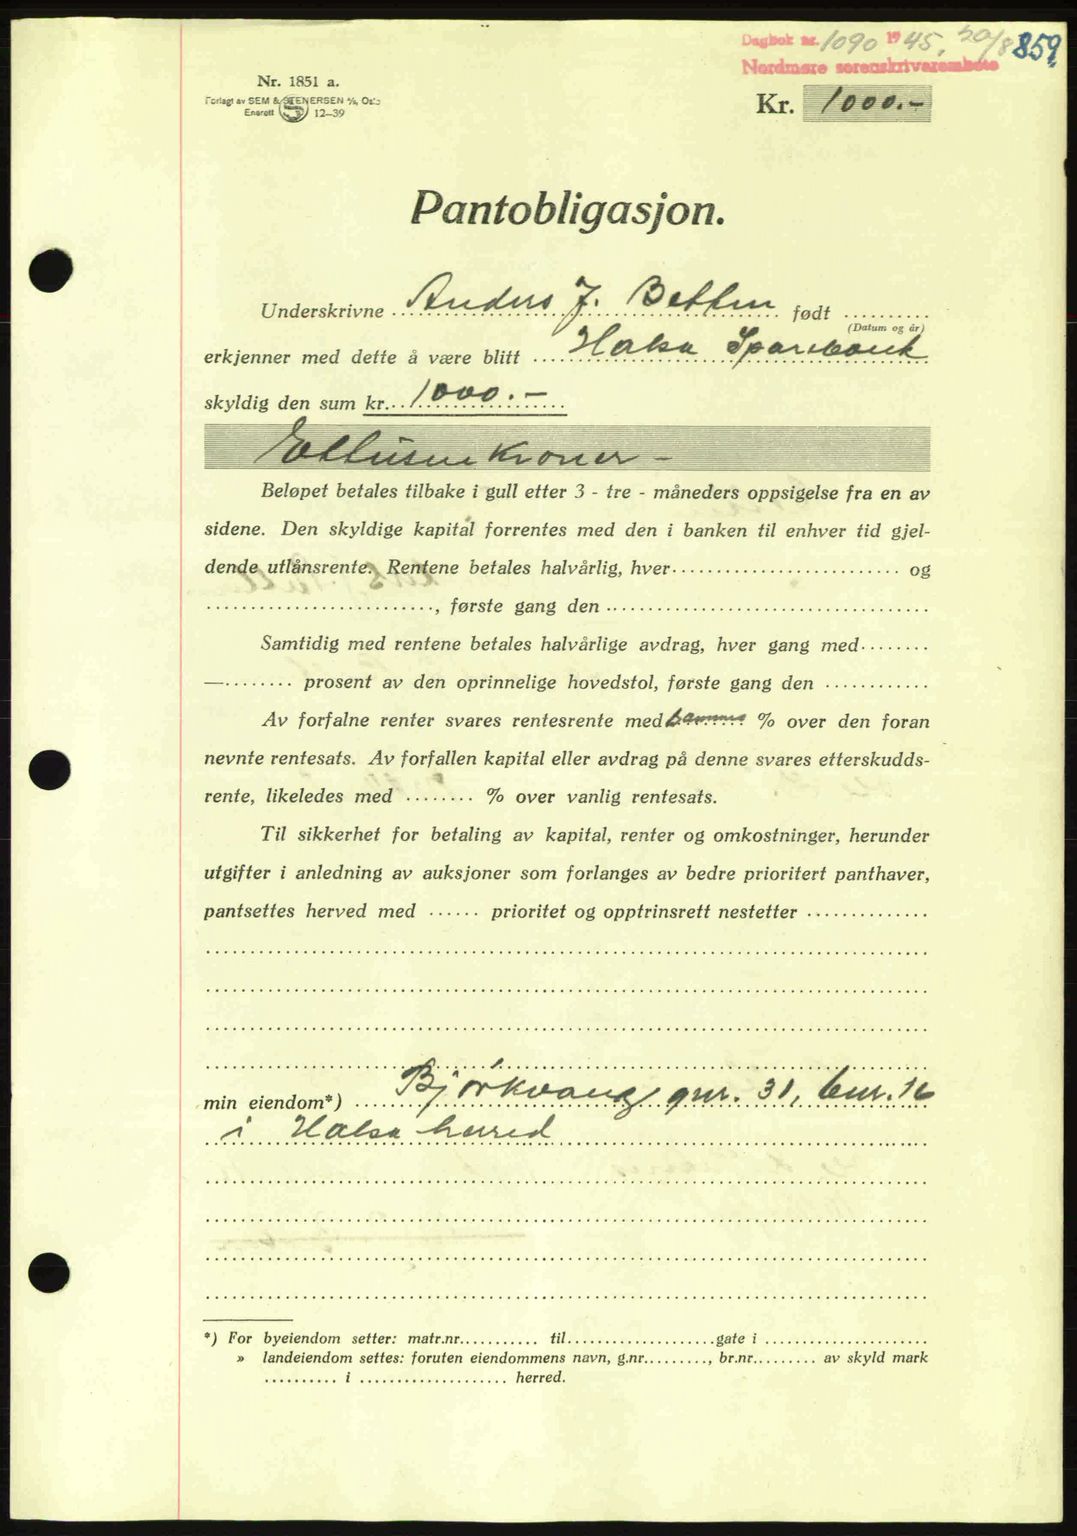 Dagbok nr. 1090 1945, 20/8 859
Nordmøre sorenskriverembete
Nr. 1851 a.
Forlagt av SEM & STENERSEN A/S, Oslo
Enerett 12—39
Kr. 1000.-
Pantobligasjon.
Underskrivne Anders J. Betten født
(Datum og år)
erkjenner med dette å være blitt Halsa Sparebank
skyldig den sum kr. 1000.-
Ettusen kroner -
Beløpet betales tilbake i gull etter 3 - tre - måneders oppsigelse fra en av
sidene. Den skyldige kapital forrentes med den i banken til enhver tid gjel-
dende utlånsrente. Rentene betales halvårlig, hver og
, første gang den
Samtidig med rentene betales halvårlige avdrag, hver gang med
— prosent av den oprinnelige hovedstol, første gang den
Av forfalne renter svares rentesrente med samme % over den foran
nevnte rentesats. Av forfallen kapital eller avdrag på denne svares etterskudds-
rente, likeledes med % over vanlig rentesats.
Til sikkerhet for betaling av kapital, renter og omkostninger, herunder
utgifter i anledning av auksjoner som forlanges av bedre prioritert panthaver,
pantsettes herved med prioritet og opptrinsrett nestetter
min eiendom*) Bjørkvang gnr. 31, bnr. 16
i Halsa herred
*) For byeiendom setter: matr.nr. til gate i
» landeiendom settes: foruten eiendommens navn, g.nr. , br.nr. av skyld mark
i herred.